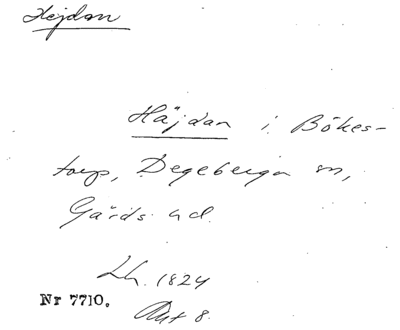 Hejdan
Häjdan i Bökes-
torp, Degeberga sn,
Gärds hd.
Lh. 1824
Nr 7710.
Akt 8.